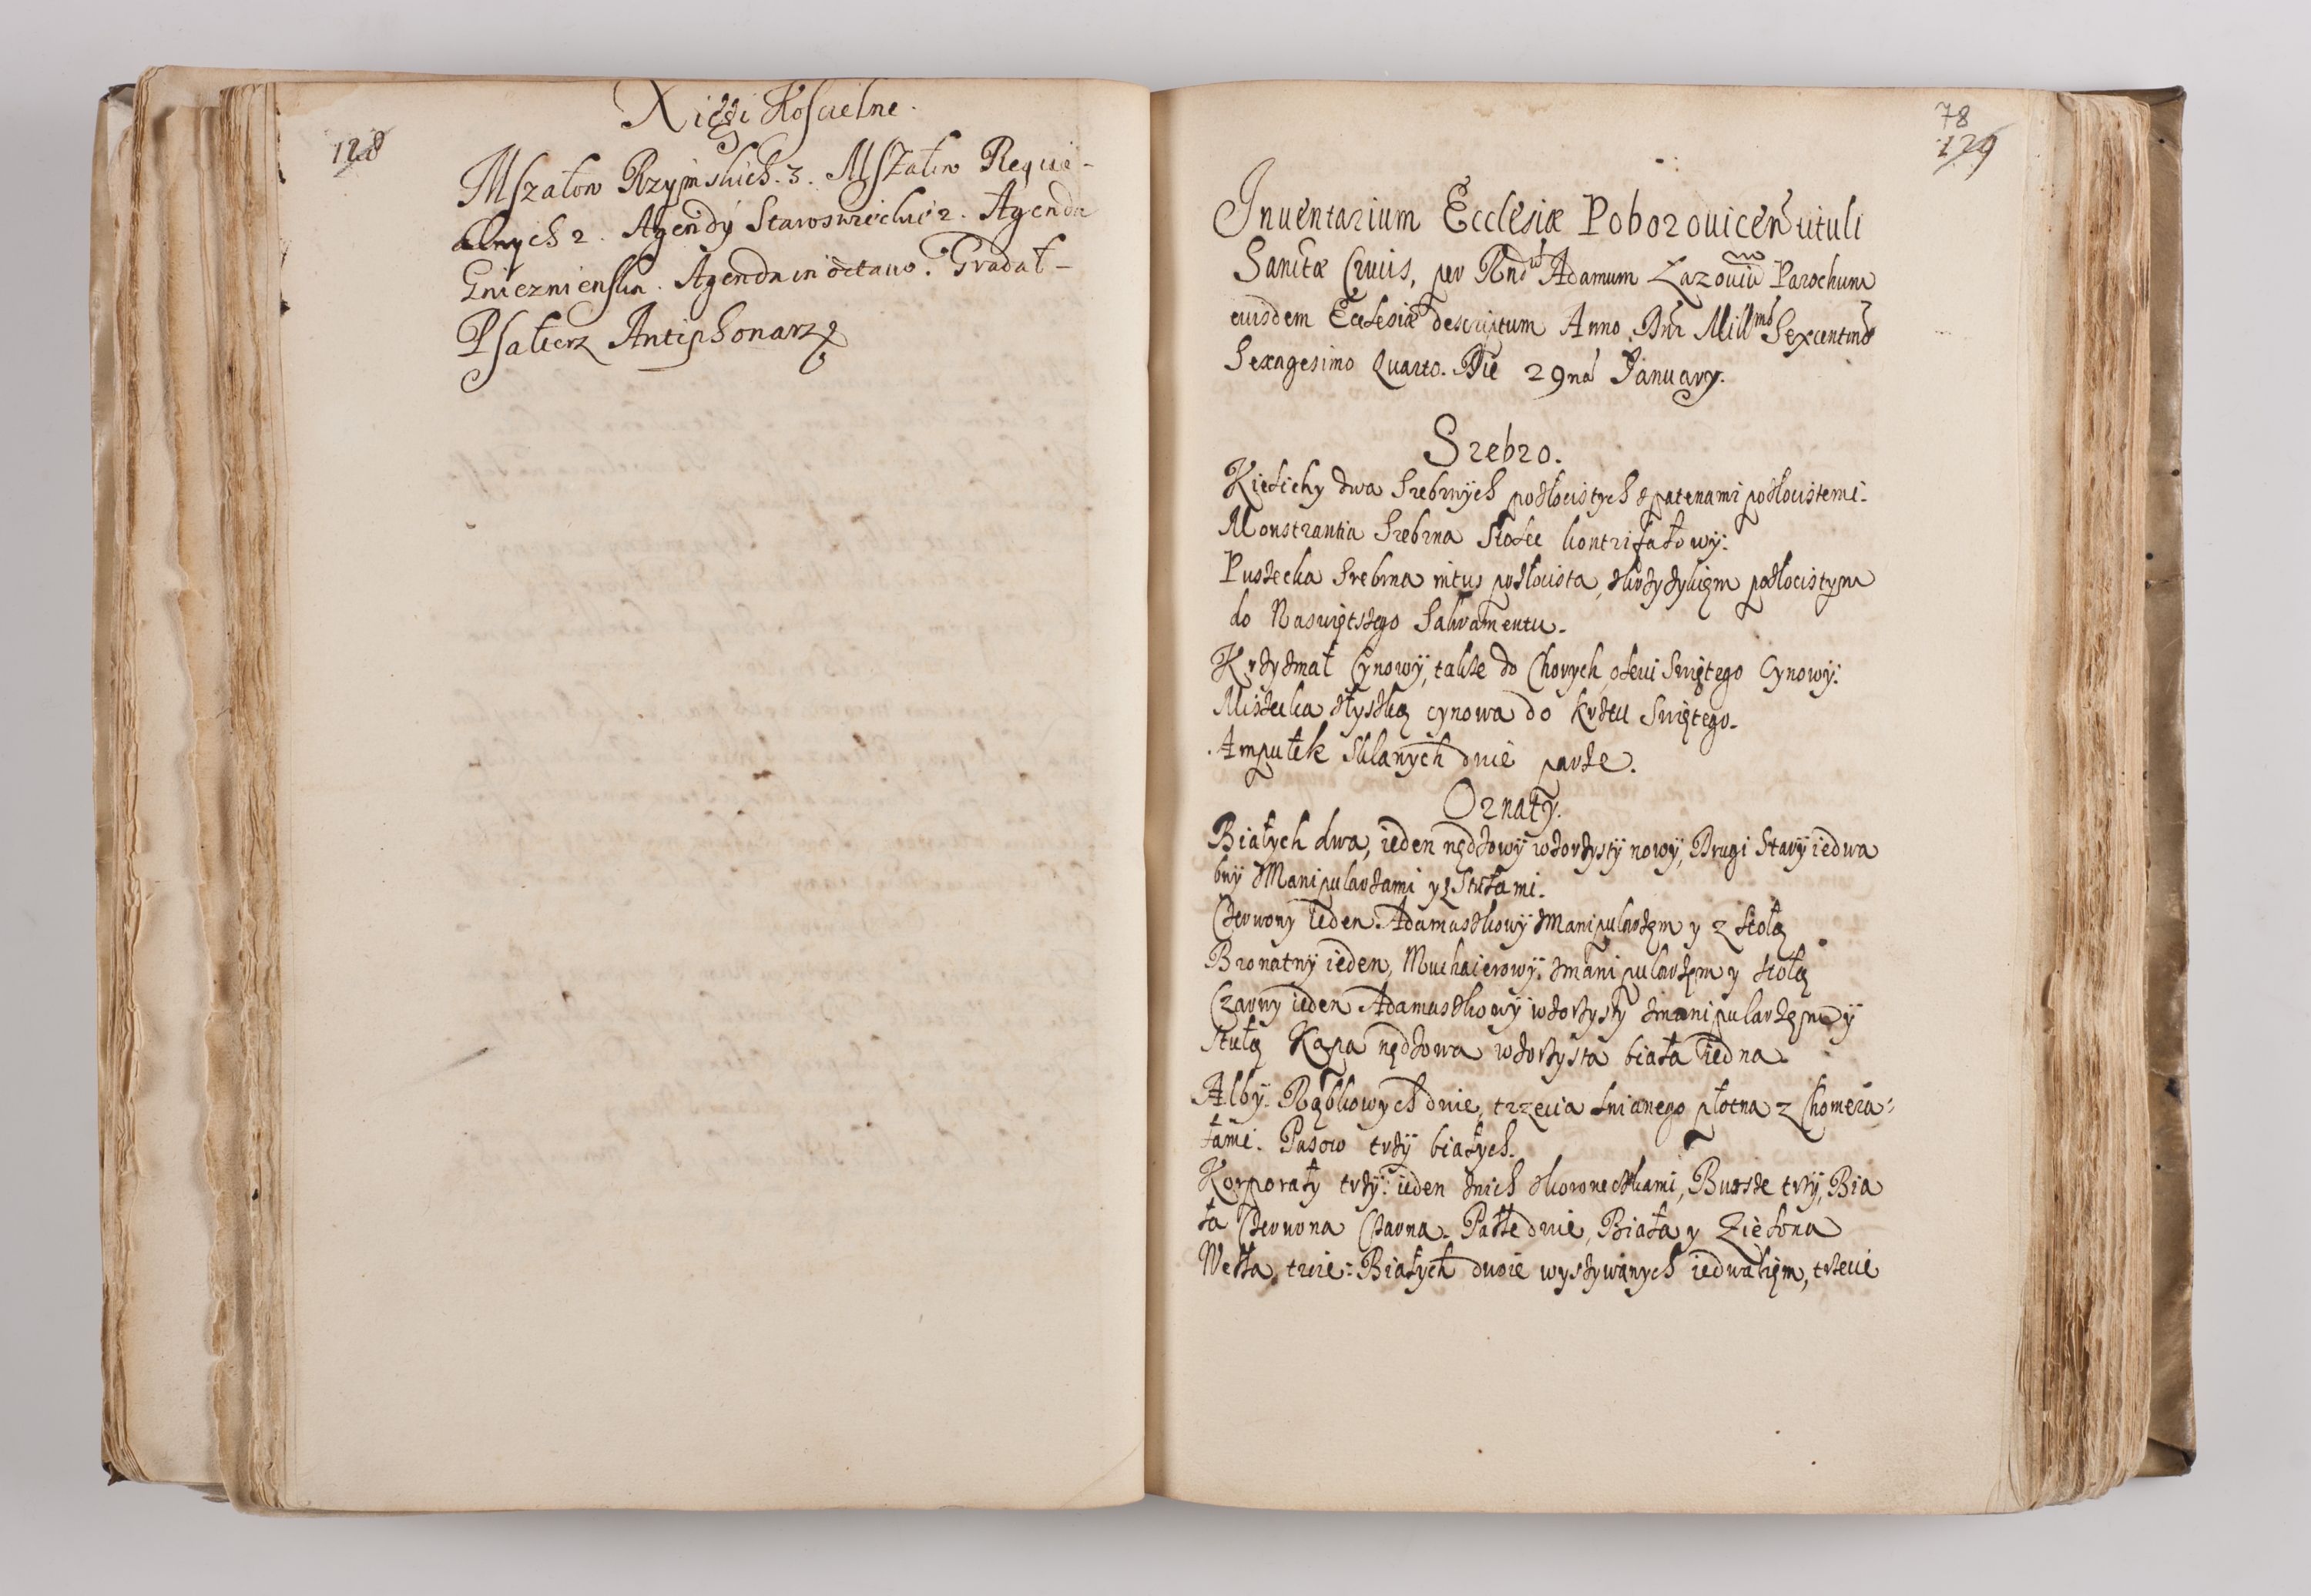 128
Xięgi Koscielne.
Mszałow Rzymskich. 3. Mszałow Requia-
lnych 2. Agendy Staroswieckie 2. Agenda
Gnieznienska. Agenda in octauo. Gradał-
Psałterz Antiphonarz
78
129
Inuentarium Ecclesiæ Poborouicen tituli
Sanctæ Crucis, per Rnd Adamum Lazouiu Parochum
eiusdem Ecclesiæ descriptum Anno Dni Mill͞mo Sexcentmo
Sexagesimo Quarto. Die 29na January.
Srebro.
Kielichy dwa Srebrnych pozłocistych z patenami pozłocistemi.
Monstrantia Srebrna Stolec kontrifałowy.
Puszecka Srebrna intus pozłocista, z krzyzykięm pozłocistym
do Naswiętszego Sakramentu.
Krzyzmał Cynowy, takze do Chorych oleiu Swiętego Cynowy.
Miszecka z łyszką cynowa do krztu Swiętego.
Ampułek Sklanych dwie parze.
Ornaty.
Białych dwa, ieden nędzowy wzorzysty nowy, Drugi Stary iedwa
bny z Manipularzami y z Stułami.
Czerwony ieden Adamaszkowy z Manipularzęm y z stołą
Bronatny ieden, Muchaierowy z manipularzęm y stołą
Czarny ieden Adamaszkowy wzorzysty z manipularzęm y
stułą Kapa nędzowa wzorzysta biała iedna.
Alby. Rąbkowych dwie, trzecia lnianego płotna z Chomera-
łami. Pasow trzy białych.
Korporały trzy: ieden z nich z koroneczkami, Bursze trzy, Bia
ła Czerwona Czarna. Palle dwie, Biała y Zielona
Wella, troie: Białych dwoie wyszywanych iedwabięm, trzecie